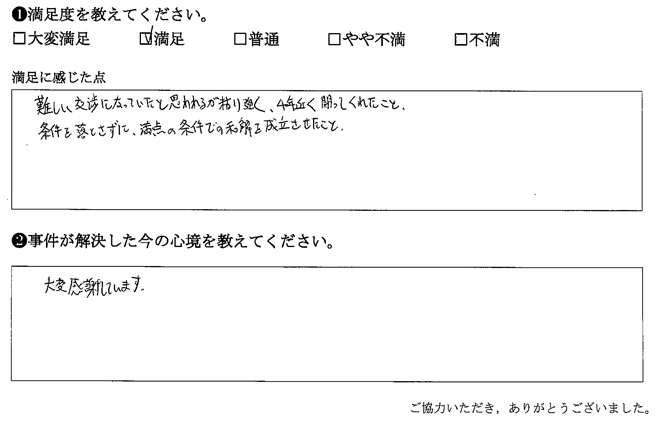 ❶満足度を教えてください。
□大変満足 ☑満足 □普通 □やや不満 □不満
満足に感じた点
難しい交渉になっていたと思われるが粘り強く、4年近く闘ってくれたこと.
条件を落とさずに、満点の条件での和解を成立させたこと.
❷事件が解決した今の心境を教えてください。
大変感謝しています.
ご協力いただき，ありがとうございました。